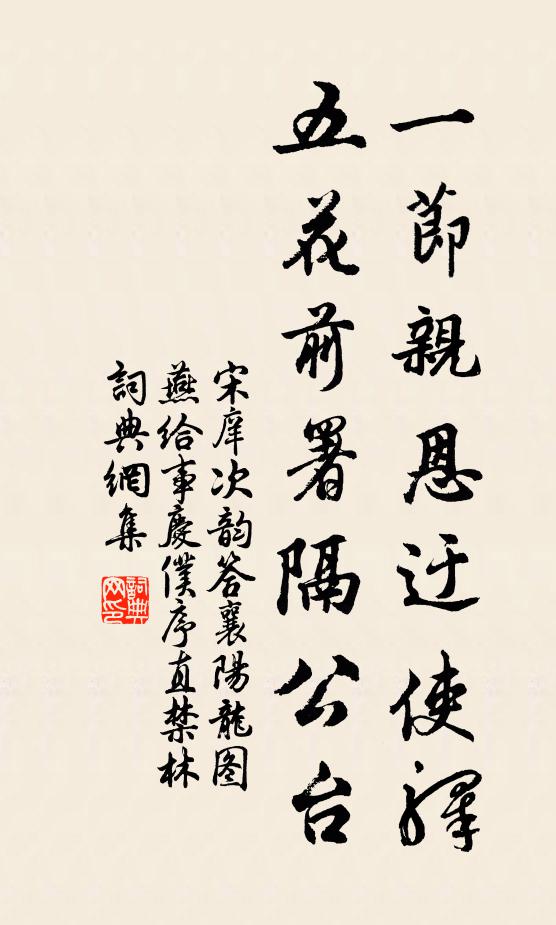 一節親恩迂使驛
五花前署隔公台
宋庠次韵答襄陽龍图
燕给事慶僕序直禁林
詞典網集
詞典
网印